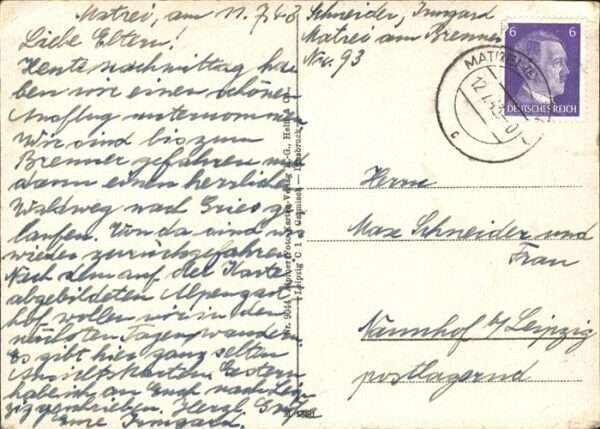 Matrei, am 11.7.43
Liebe Eltern!
Heute nachmittag ha
ben wir einen schönen
Ausflug unternommen.
Wir sind bis zum
Brenner gefahren und
dann einen herrlichen
Waldweg nach Gries ge
laufen. Von da sind wir
wieder zurückgefahren.
Nach dem auf der Karte
abgebildeten Alpengast
hof wollen wir in den
nächsten Tagen wandern.
Es gibt hier ganz selten
Ansichtskarten. Gestern
habe ich an Euch nach Leip
zig geschrieben. Herzl. Grüße
Eure Irmgard.
Schneider, Irmgard
Matrei am Brenner
Nr. 93
6 6
DEUTSCHES REICH
MATREI
12.7.43
c
Herrn
Max Schneider und
Frau
Naunhof b/Leipzig
postlagernd
Nr. 9044
Leipzig C 1
Innsbruck